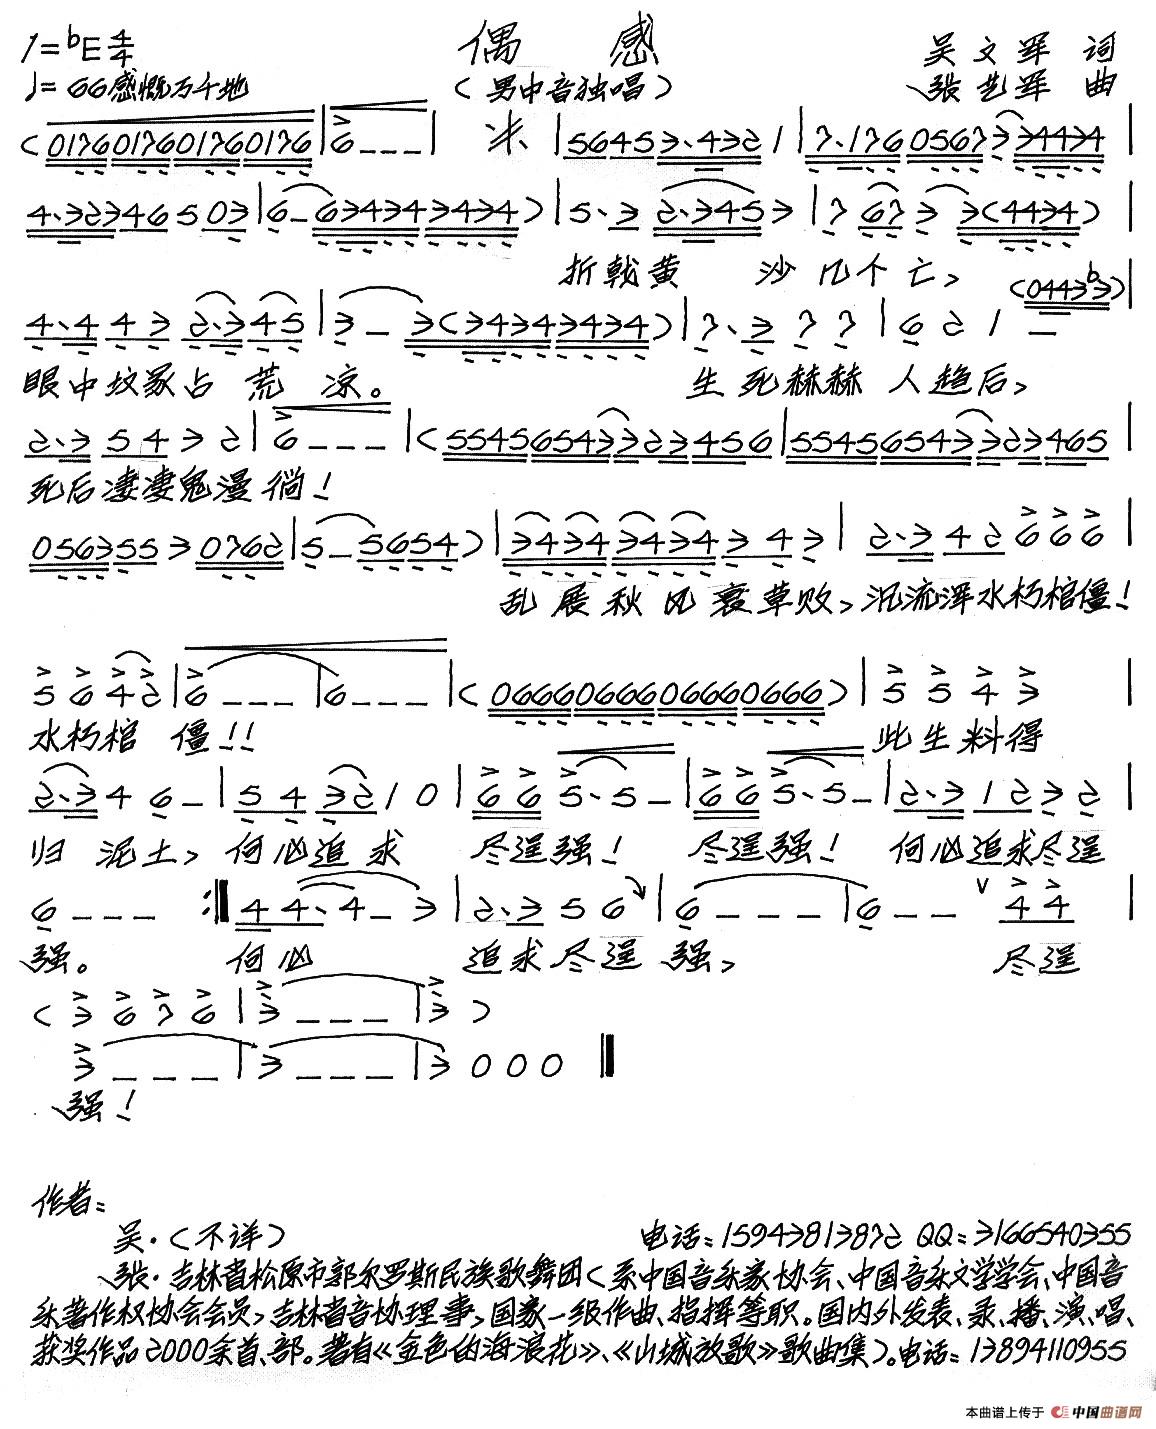 1=♭E 4/4 偶 感 吴文军 词
♩=66感慨万千地 （男中音独唱） 张艺军 曲
(0176017601760176|6---| 米、|56453·4321|7·17605673 3443 4|
4·32346503|6-634343434)|5·3 2·3453|767 3 3(4434)|
折戟黄 沙几个亡、
(0443♭3)|
4·4 43 2·345|3-3(34343434)|7·3 77|621-
眼中坟冢占 荒 凉。 生死赫赫 人趋后、
2·35432|6---|(55456543323456|55456543323465|
死后凄凄鬼漫徜！
0563553 0762|5-5654)|34343434343|2·342666|
乱 展 秋 风 衰草败、汎流浑水朽棺僵！
5642|6---|6---|(0666066606660666)|5543|
水朽棺 僵！！ 此生料得
2·346-|543210|665·5-|665·5-|2·31232|
归 泥土、何必追求 尽逞强！ 尽逞强！ 何必追求尽逞
6---:‖44·4-3|2·356|6---|6--∨44|
强。 何必 追求尽逞 强、 尽逞
(3676|3---|3 )
3---|3---|3000‖
强！
作者：
吴·（不详） 电话：15943813872 QQ：3166540355
张·吉林省松原市郭尔罗斯民族歌舞团（系中国音乐家协会、中国音乐文学学会、中国音
乐著作权协会会员、吉林省音协理事、国家一级作曲、指挥等职。国内外发表、录、播、演、唱、
获奖作品2000余首、部。著有《金色的海浪花》、《山城放歌》歌曲集）。电话：13894110955
本曲谱上传于 中国曲谱网